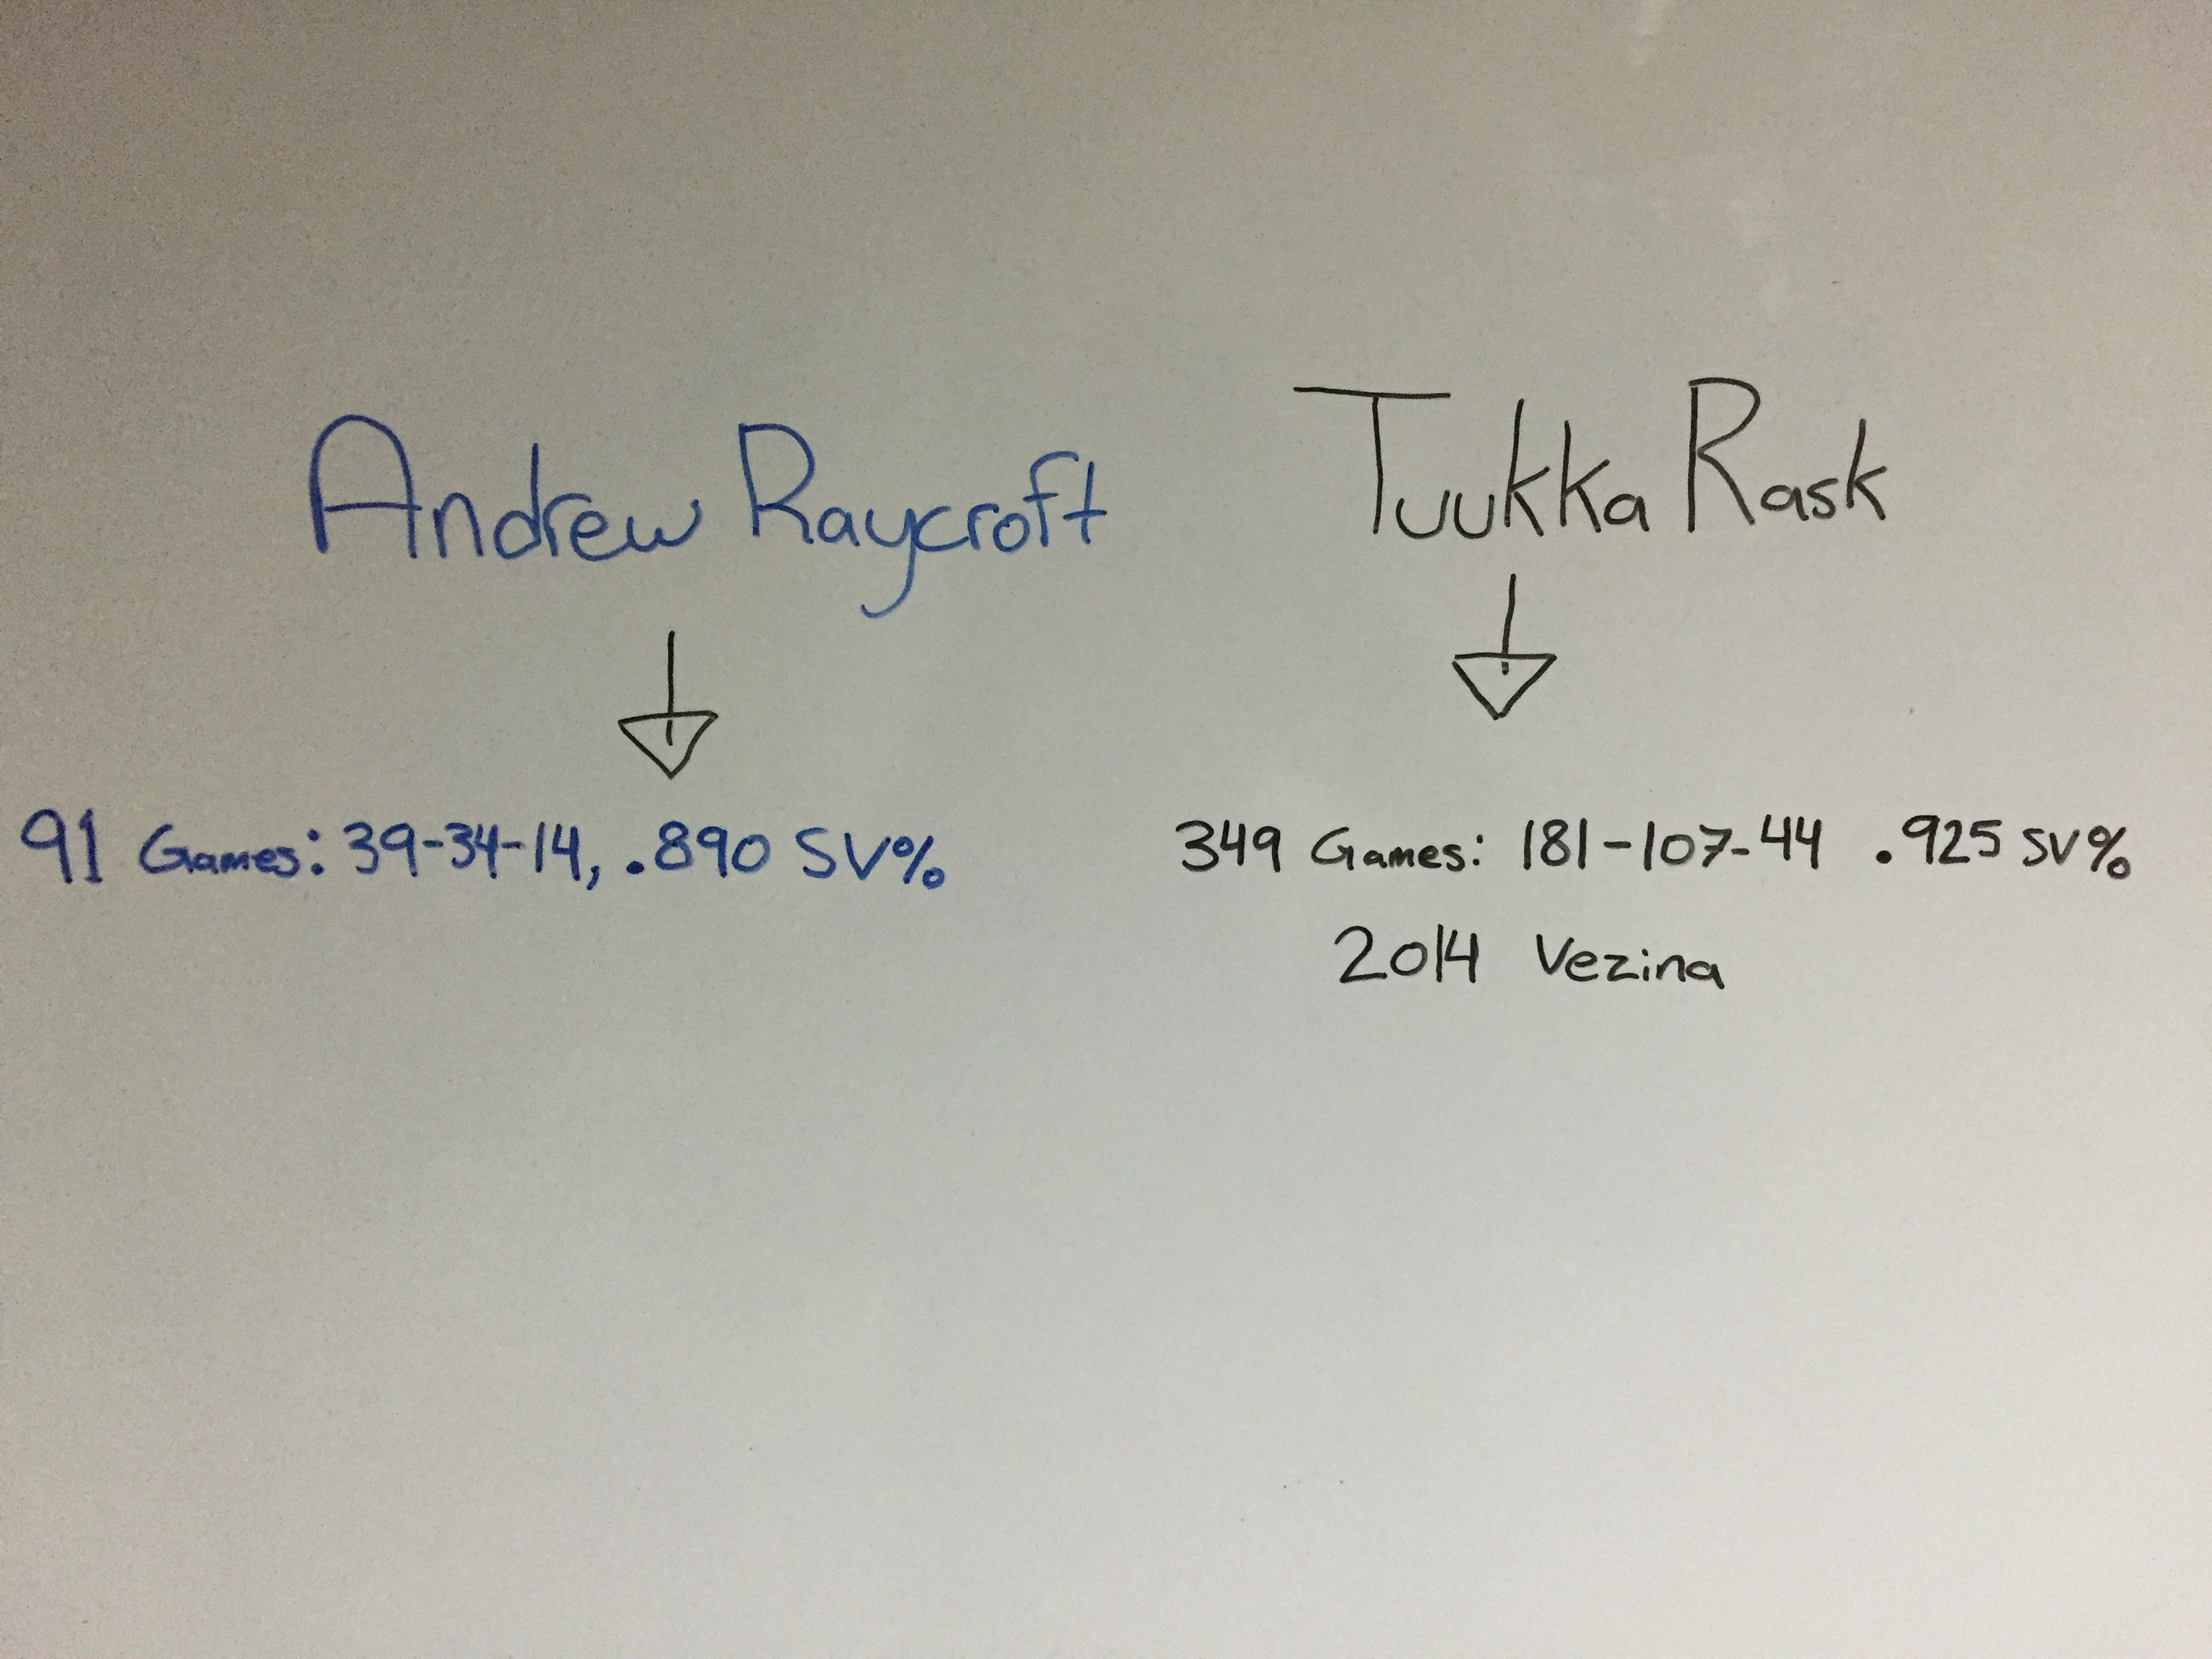 Andrew Raycroft
91 Games: 39-34-14, .890 SV%
Tuukka Rask
349 Games: 181-107-44 .925 SV%
2014 Vezina